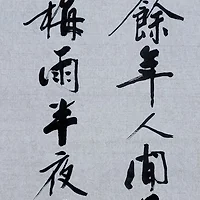 餘年人間
梅雨半夜